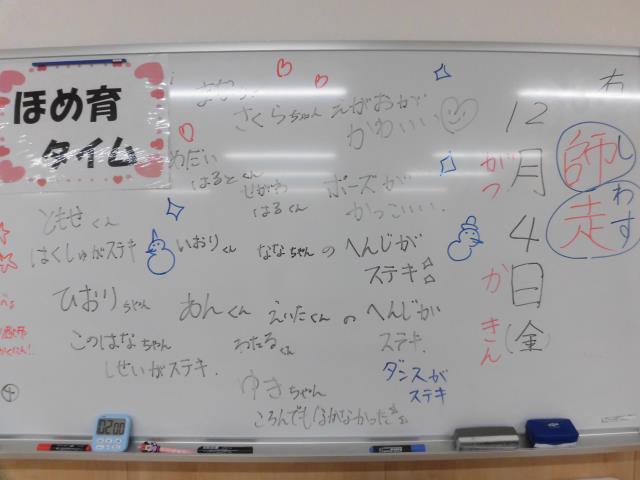 ほめ育
タイム
さくらちゃん えがおが
かわいい
はるとくん
はるくん
ポーズが
かっこいい.
ともせくん
はくしゅがステキ
いおりくん ななちゃんのへんじが
ステキ
ひおりちゃん あんくん えいたくんのへんじが
ステキ.
このはなちゃん
しせいがステキ.
わたるくん
ダンスが
ステキ
ゆきちゃん
ころんでもなかなかった
02:00
12
月
がつ
4
日
か
(金)
きん
師走
しわす